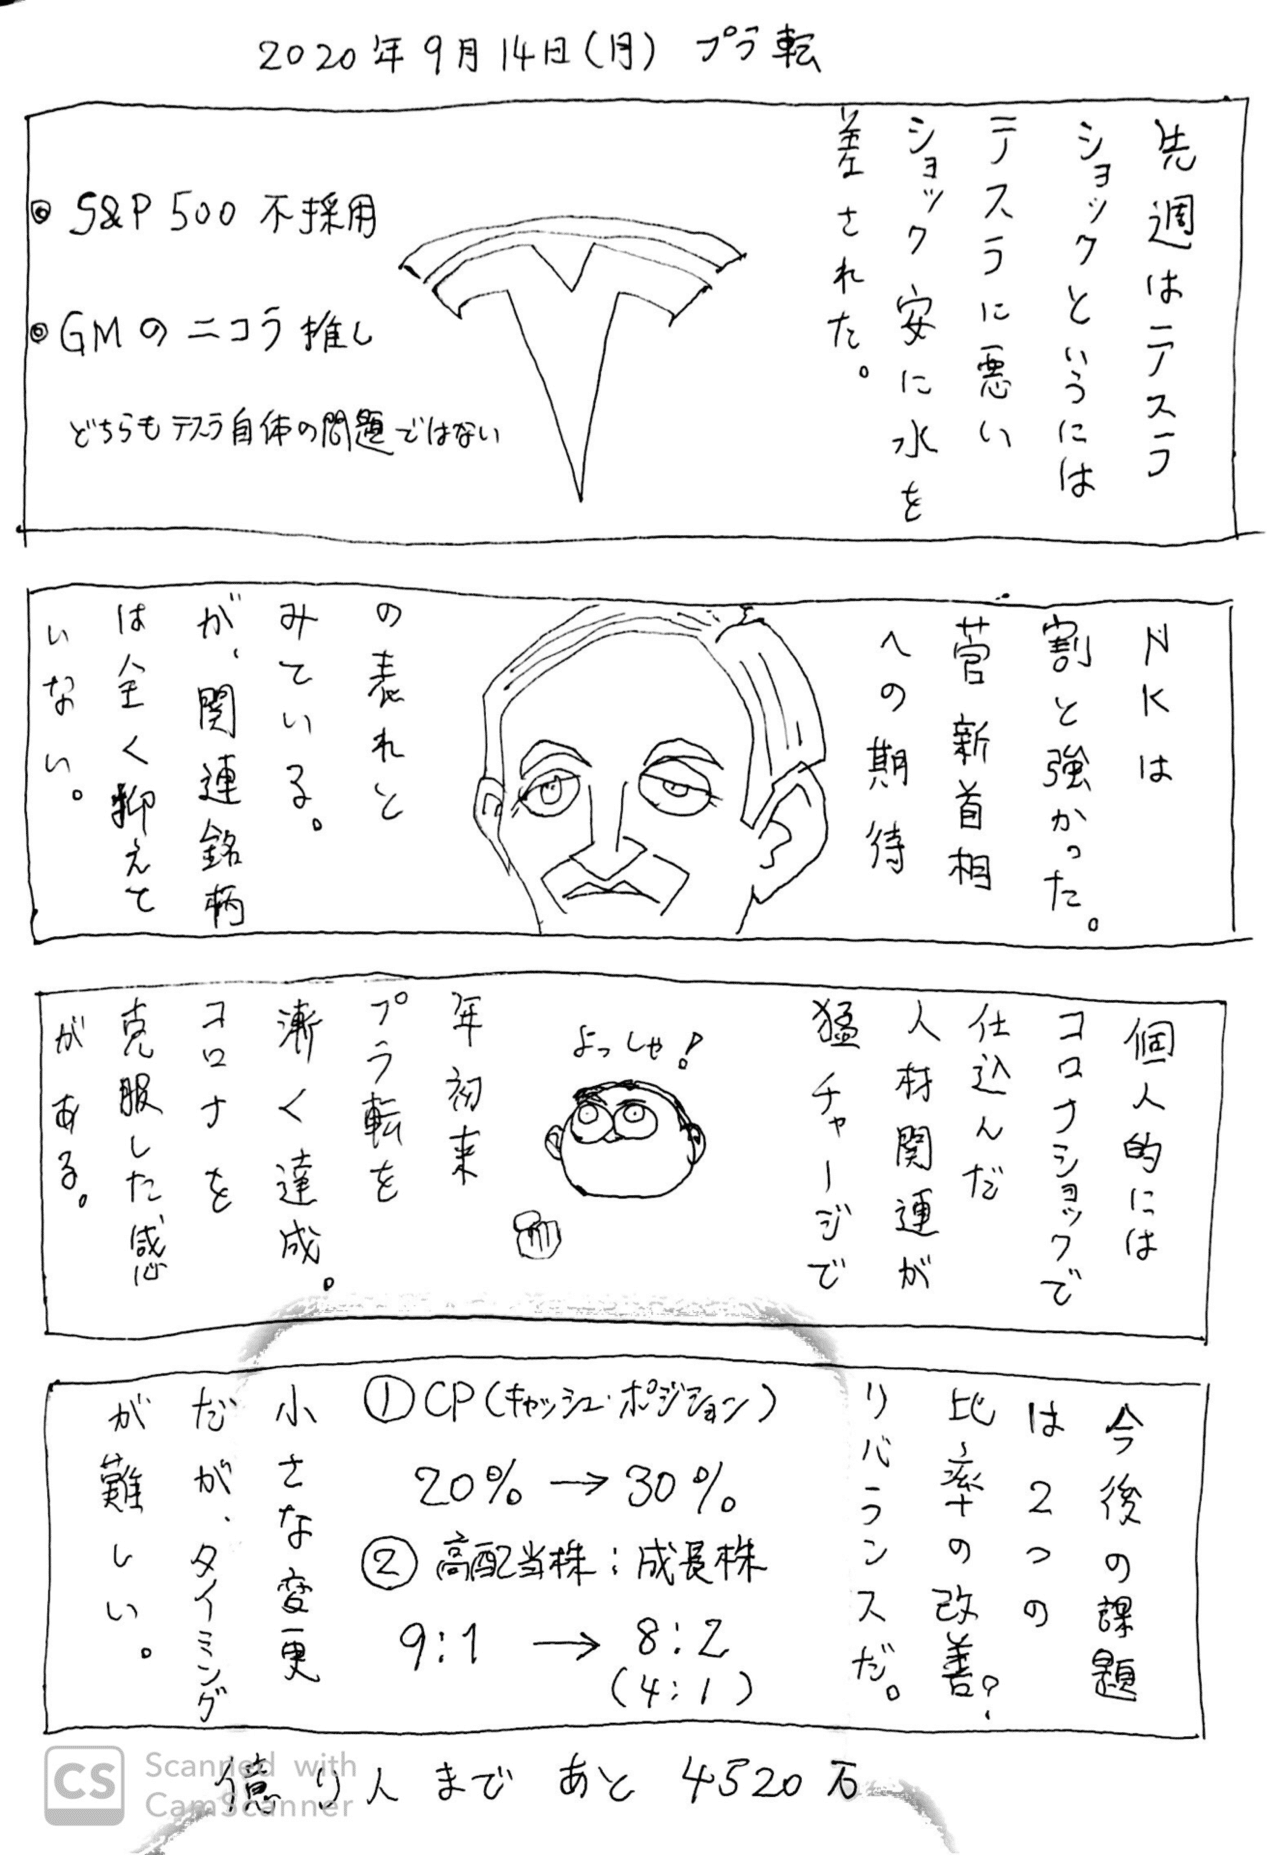 2020年9月14日(月) プラ転
先週はテスラ
ショックというには
テスラに悪い
ショック安に水を
差された。
◎ S&P 500 不採用
◎ GMのニコラ推し
どちらもテスラ自体の問題ではない
NKは
割と強かった。
菅新首相
への期待
の表れと
みている。
が、関連銘柄
は全く抑えて
いない。
個人的には
コロナショックで
仕込んだ
人材関連が
猛チャージで
よっしゃ!
年初来
プラ転を
漸く達成。
コロナを
克服した感
がある。
今後の課題
は2つの
比率の改善?
リバランスだ。
① CP(キャッシュ・ポジション)
20% → 30%
② 高配当株:成長株
9:1 → 8:2
(4:1)
小さな変更
だが、タイミング
が難しい。
億り人まであと4520万
CS
Scanned with
CamScanner